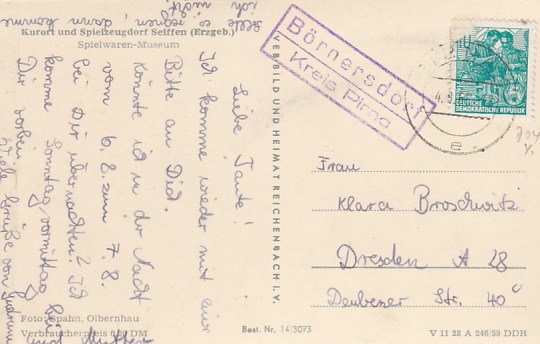 Kurort und Spielzeugdorf Seiffen (Erzgeb.)
Spielwaren-Museum
Liebe Tante!
Ich komme wieder mit einer
Bitte an Dich.
Könnte ich in der Nacht
vom 6.8. zum 7.8.
bei Dir übernachten? Ich
komme Sonntag vormittag bei
Dir vorbei.
Viele Grüße von Gudrun
und Mutter
Foto: Spahn, Olbernhau
Verbraucherpreis 0,20 DM
VERBILD UND HEIMAT REICHENBACH I. V.
Best. Nr. 14/3073
Börnersdorf
Kreis Pirna
DEUTSCHE
DEMOKRATISCHE REPUBLIK
e
Frau
Klara Broschwitz
Dresden A 28
Deubener Str. 40
V 11 28 A 246/59 DDR